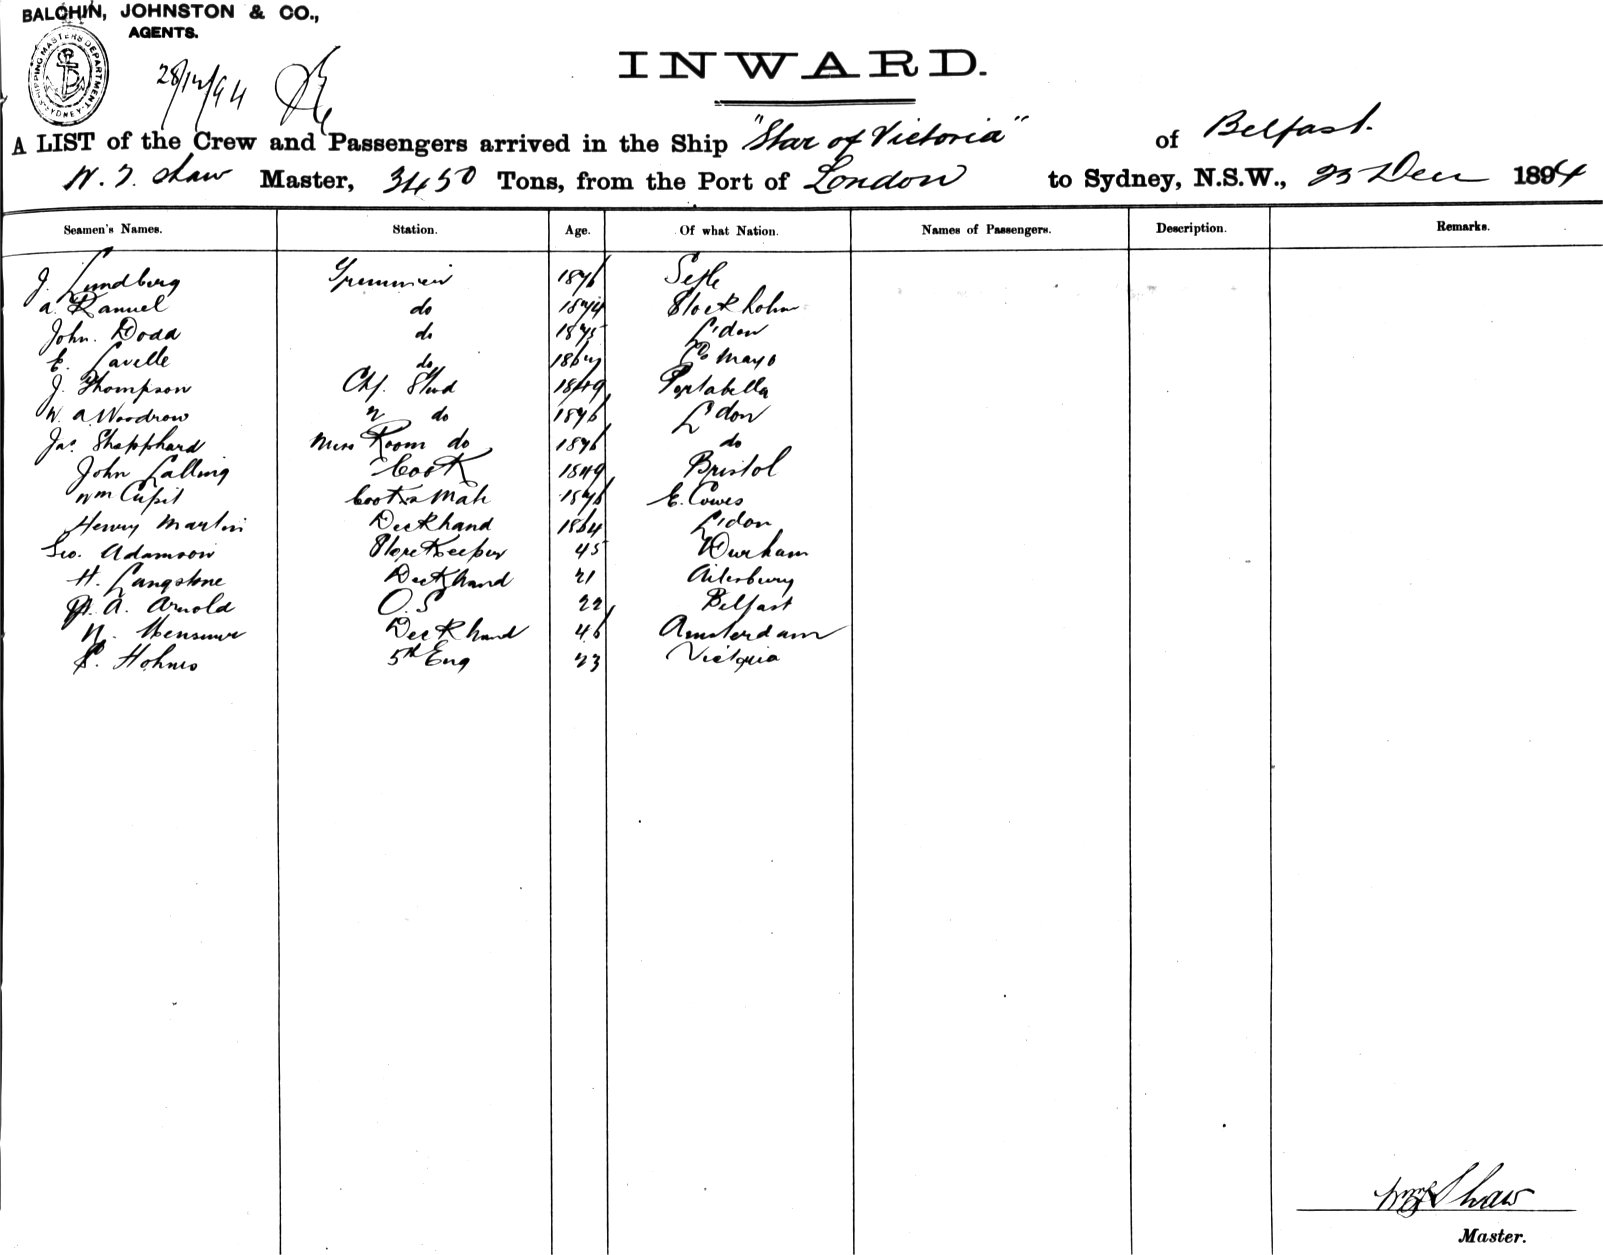 BALCHIN, JOHNSTON & CO.,
AGENTS.
SHIPPING MASTERS DEPARTMENT SYDNEY
28/12/94
INWARD.
A LIST of the Crew and Passengers arrived in the Ship "Star of Victoria" of Belfast.
W. J. Shaw Master, 3450 Tons, from the Port of London to Sydney, N.S.W., 23 Dec 1894
Seamen's Names. Station. Age. Of what Nation. Names of Passengers. Description. Remarks.
J. Lundberg 1876
A. Ranuel do 1874 Stockholm
John. Dodd do 1875 L'don
E. Lavelle do 1867 Co Mayo
J. Thompson Chf. Stwd 1849 Portabella
W. A. Woodrow 2 do 1876 L'don
Jas. Shepphard Mess Room do 1876 do
John Lalling Cook 1849 Bristol
Wm Cupit Cooks Mate 1876 E. Cowes
Henry Martin Deckhand 1864 L'don
Geo. Adamson StoreKeeper 45 Durham
H. Langstone Deckhand 21 Ailesbury
A. Arnold O.S 22 Belfast
Deckhand 46 Amsterdam
Holmes 5th Eng 23 Victoria
Shaw
Master.